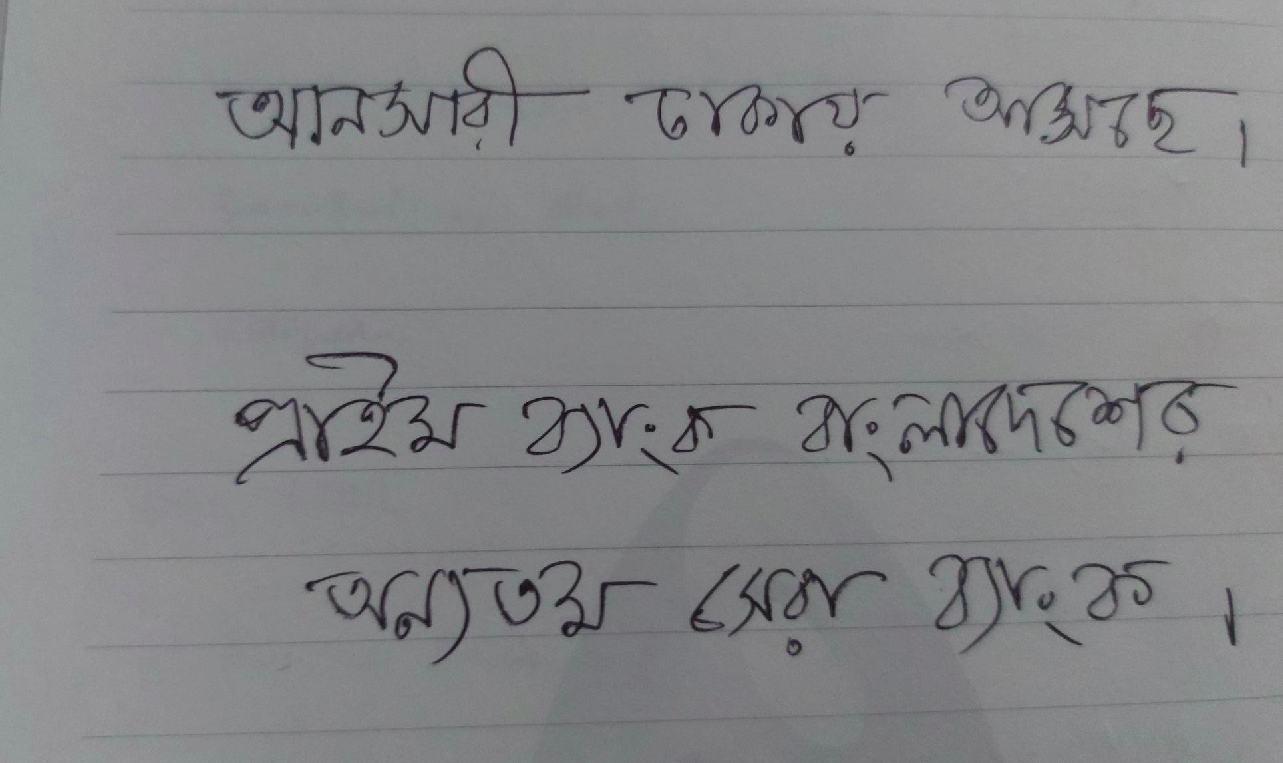 আনসারী ঢাকায় আসছে।
প্রাইম ব্যাংক বাংলাদেশের
অন্যতম সেরা ব্যাংক।